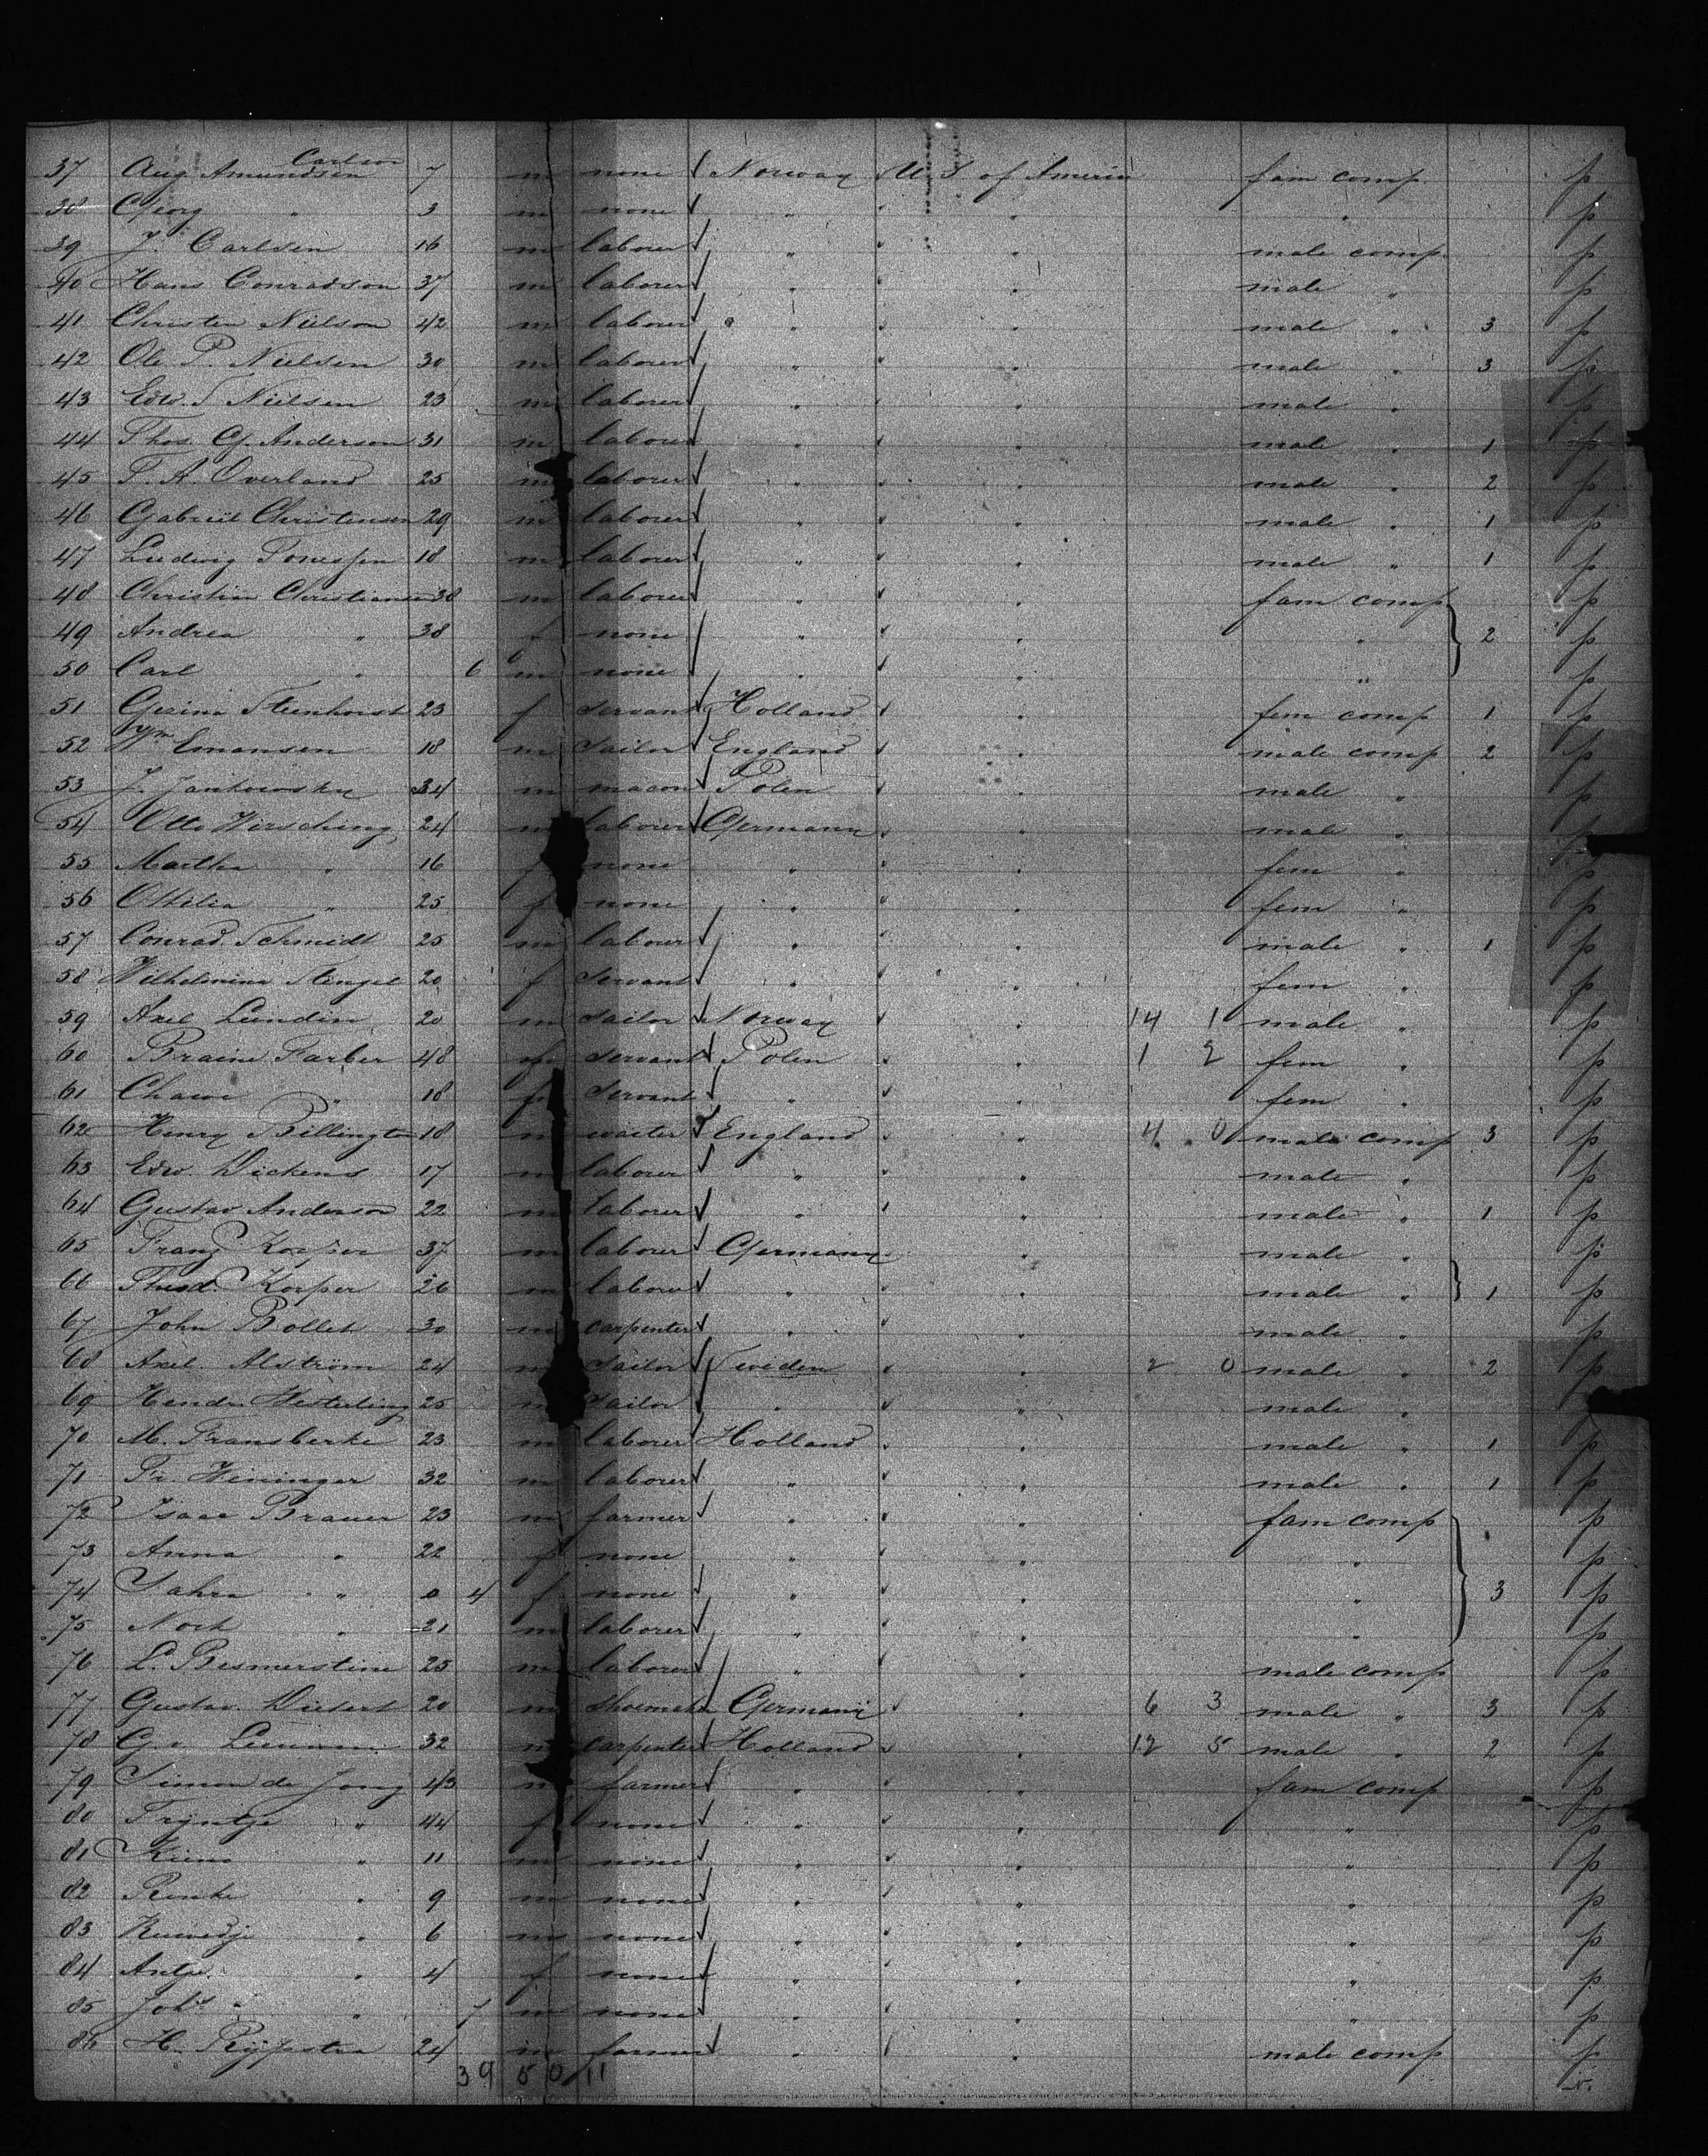 37 Aug Amundsen Carlson 7 m none Norway U S of America fam comp. p
38 Georg " 3 m none " " " p
39 J. Carlsen 16 m laborer " " male comp. p
40 Hans Conradson 37 m laborer " " male " p
41 Christen Nielson 42 m laborer " " male " 3 p
42 Ole P. Nielsen 30 m laborer " " male " 3 p
43 Edw. S Nielsen 23 m laborer " " male " p
44 Thos. G. Anderson 31 m laborer " " male " 1 p
45 T. A Overland 25 m laborer " " male " 2 p
46 Gabriel Christensen 29 m laborer " " male " 1 p
47 Ludwig Tonessen 18 m laborer " " male " 1 p
48 Christian Christiansen 38 m laborer " " fam comp p
49 Andrea " 38 f none " " " 2 p
50 Carl " 6 m none " " " p
51 Gezina Steenhorst 23 f servant Holland " fem comp 1 p
52 Wm Emansen 18 m sailor England " male comp 2 p
53 J. Jankowsky 34 m macon Polen " male " p
54 Otto Wirsching 24 m laborer Germany " male " p
55 Martha " 16 f none " " fem " p
56 Ottilia " 25 f none " " fem " p
57 Conrad Schmidt 25 m laborer " " male " 1 p
58 Wilhelmina Stengel 20 f servant " " fem " p
59 Axel Lundin 20 m sailor Norway " 14 1 male " p
60 Braine Farber 48 f servant Polen " 1 2 fem " p
61 " 18 f servant " " fem " p
62 Henry Billington 18 m waiter England " 4 0 male comp 3 p
63 Edw. Dickens 17 m laborer " " male " p
64 Gustav Anderson 22 m laborer " " male " 1 p
65 Franz Korper 37 m laborer Germany " male " p
66 Theod. Korper 26 m laborer " " male " 1 p
67 John Bollet 30 m carpenter " " male " p
68 Axel Alström 24 m sailor Sweden " 2 0 male " 2 p
69 Hendr. Westerling 25 m sailor " " male " p
70 M. Fransberke 23 m laborer Holland " male " 1 p
71 Fr. Weninger 32 m laborer " " male " 1 p
72 Isaac Brauer 23 m farmer " " fam comp p
73 Anna " 22 f none " " " p
74 Sahra " 0 4 f none " " " 3 p
75 " 21 m laborer " " " p
76 L. Besmerstine 25 m laborer " " male comp p
77 Gustav Dietert 20 m shoemaker Germany " 6 3 male " 3 p
78 32 m carpenter Holland " 12 5 male " 2 p
79 Simon de Jong 43 m farmer " " fam comp p
80 Trijntje " 44 f none " " " p
81 " 11 m none " " " p
82 " 9 m none " " " p
83 " 6 m none " " " p
84 Antje " 4 f none " " " p
85 Johs " 7 m none " " " p
86 H. 24 m farmer " " male comp p
39 50 11